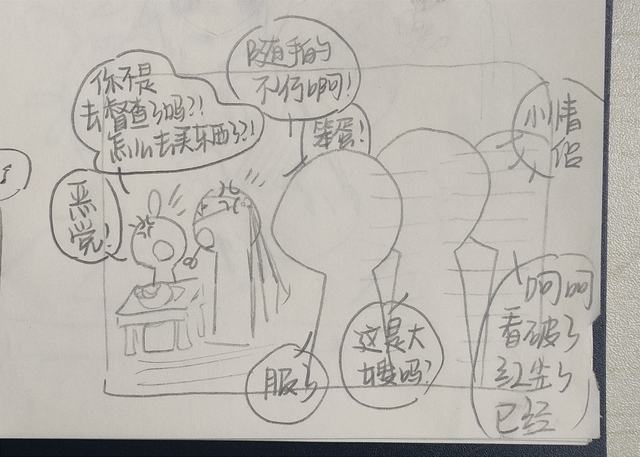 你不是
去督查了吗?!
怎么去买东西了?!
恶
党!
随手的
不行啊!
笨蛋!
小情
侣
服了
这是大
嫂吗?
呵呵
看破了
红尘了
已经